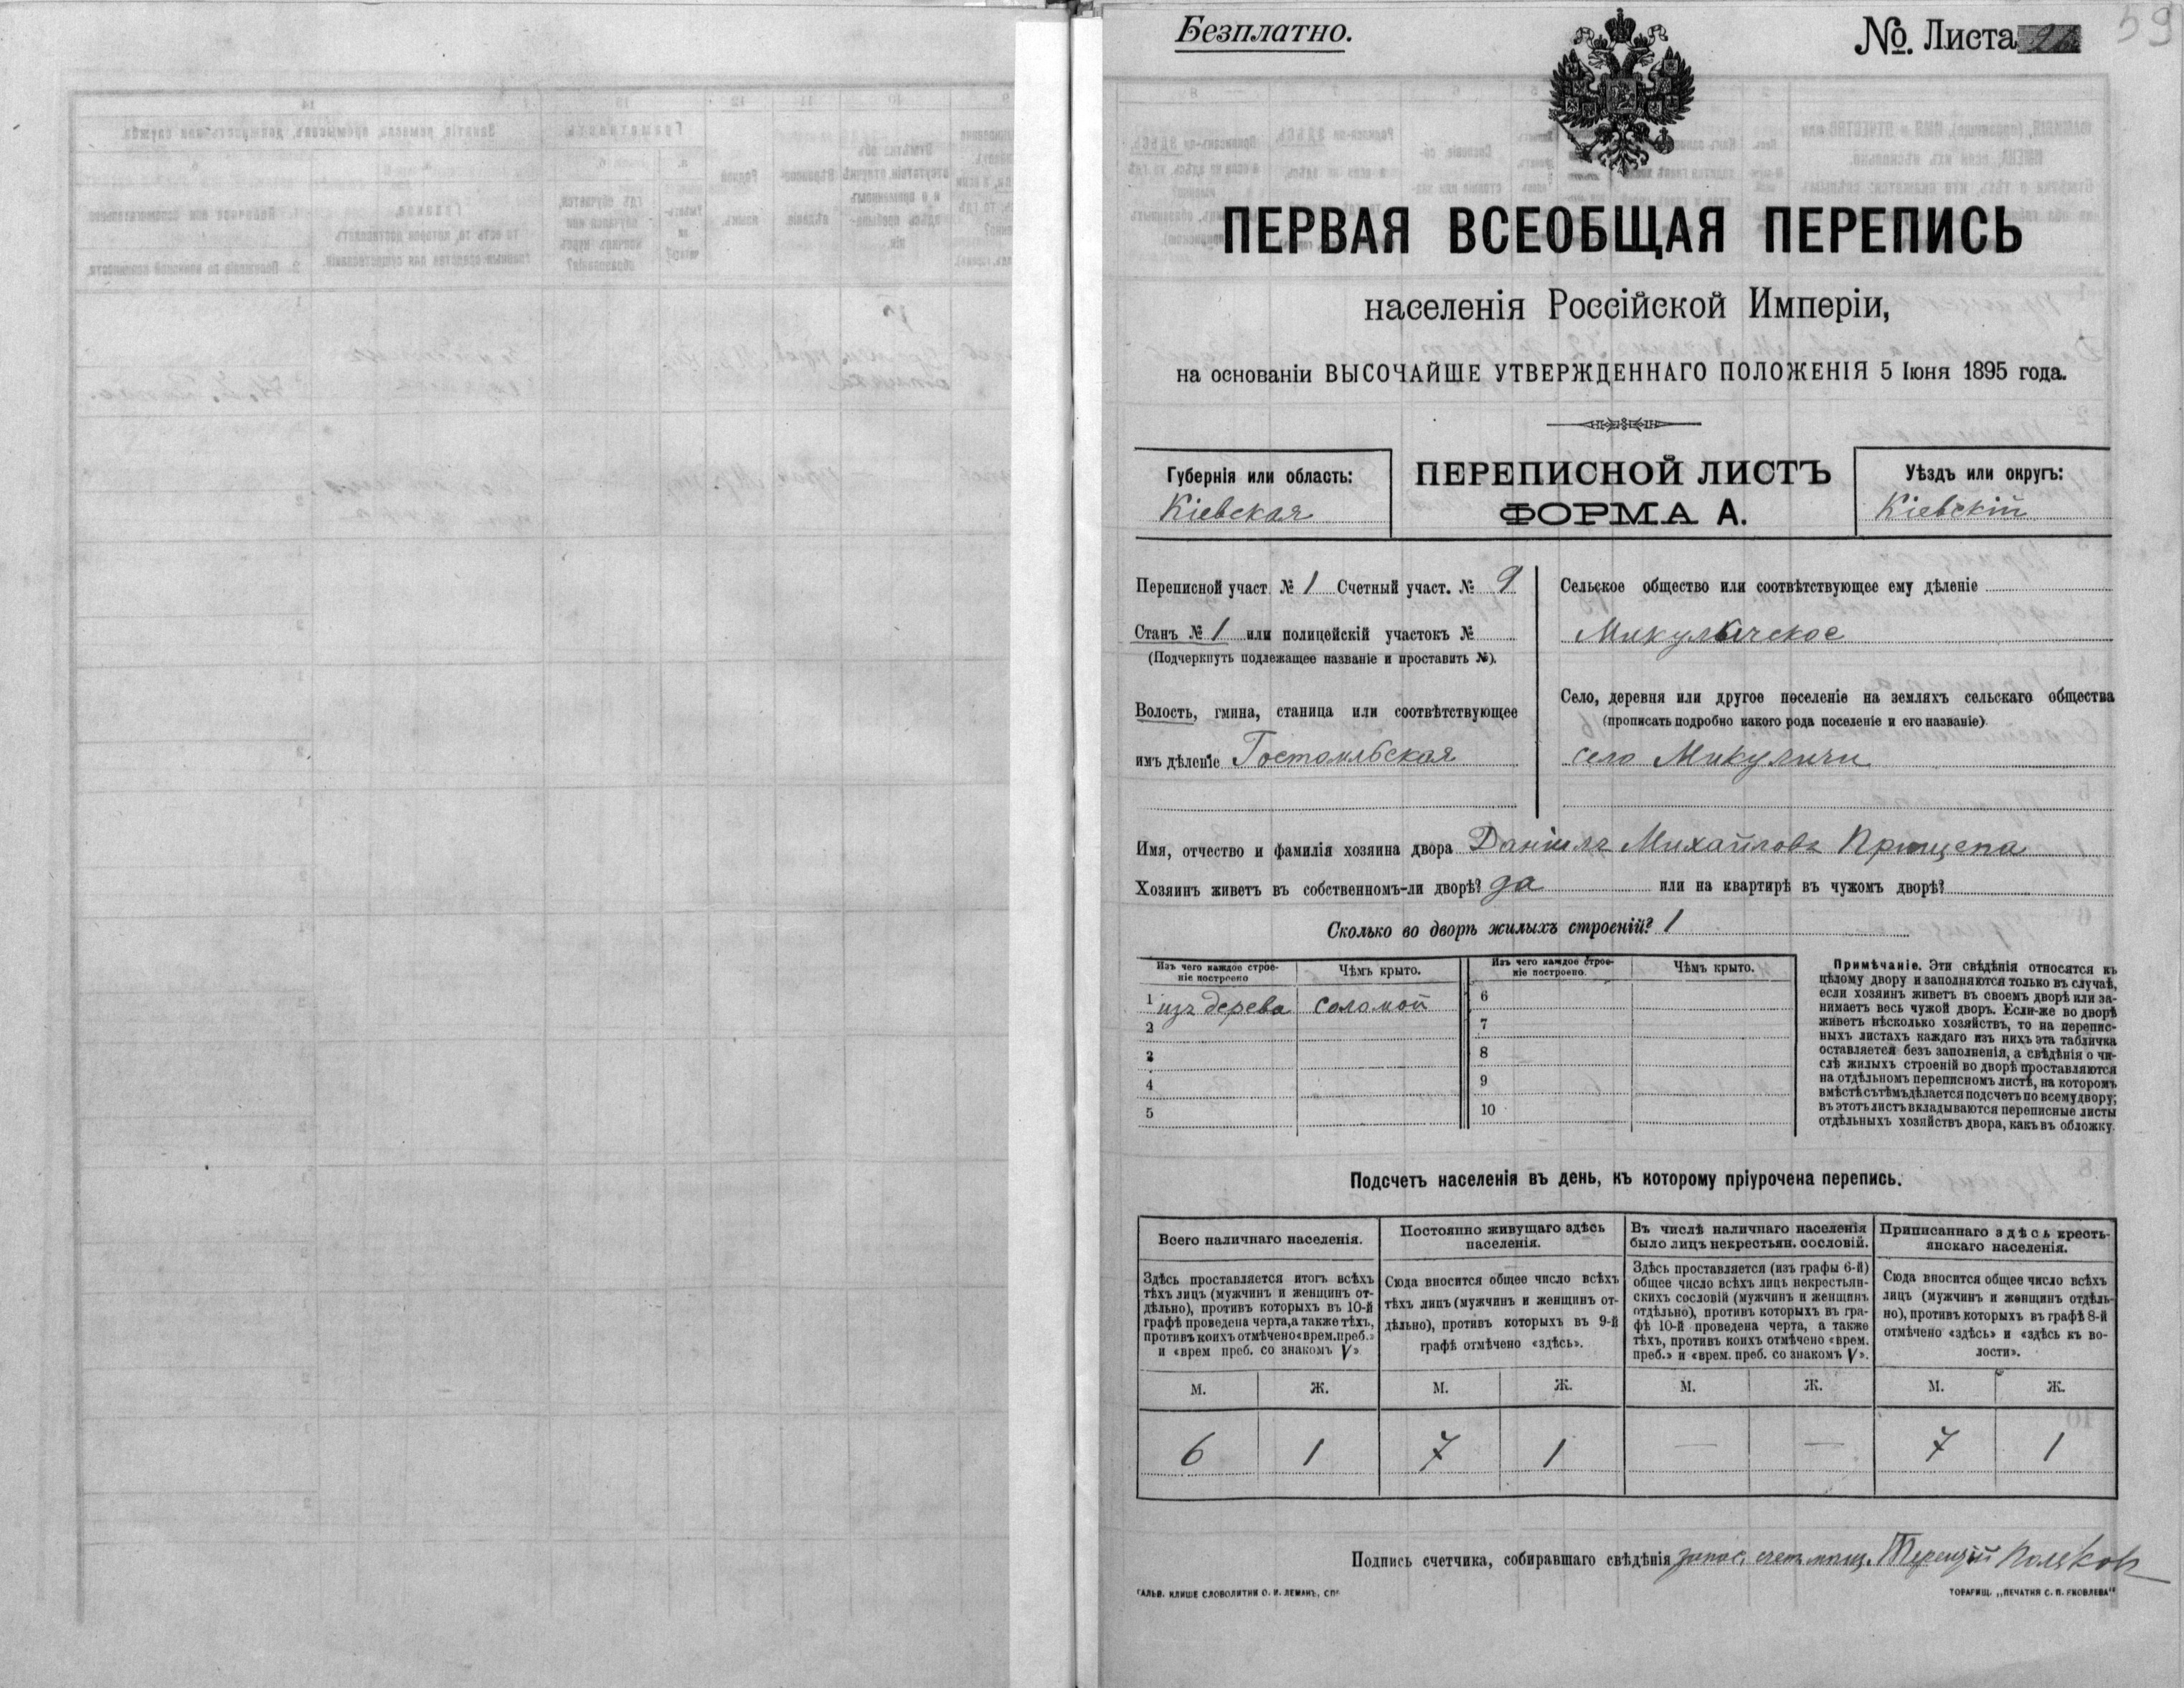 Безплатно.
№ Листа
59
ПЕРВАЯ ВСЕОБЩАЯ ПЕРЕПИСЬ
населенія Россійской Имперіи,
на основаніи ВЫСОЧАЙШЕ УТВЕРЖДЕННАГО ПОЛОЖЕНІЯ 5 Іюня 1895 года.
Губернія или область:
Кіевская
ПЕРЕПИСНОЙ ЛИСТЪ
ФОРМА А.
Уѣздъ или округъ:
Кіевскій
Переписной участ. № 1 Счетный участ. № 9
Станъ № 1 или полицейскій участокъ №
(Подчеркнуть подлежащее названіе и проставить №).
Волость, гмина, станица или соотвѣтствующее
имъ дѣленіе Гостомльская
Сельское общество или соотвѣтствующее ему дѣленіе
Микуличское
Село, деревня или другое поселеніе на земляхъ сельскаго общества
(прописать подробно какого рода поселеніе и его названіе).
село Микуличи
Имя, отчество и фамилія хозяина двора Даніилъ Михайловъ Прищепа
Хозяинъ живетъ въ собственномъ-ли дворѣ? да или на квартирѣ въ чужомъ дворѣ?
Сколько во дворѣ жилыхъ строеній? 1
Изъ чего каждое строе-
ніе построено
Чѣмъ крыто.
Изъ чего каждое строе-
ніе построено.
Чѣмъ крыто.
1 изъ дерева соломой 6
2 7
3 8
4 9
5 10
Примѣчаніе. Эти свѣдѣнія относятся къ
цѣлому двору и заполняются только въ случаѣ,
если хозяинъ живетъ въ своемъ дворѣ или за-
нимаетъ весь чужой дворъ. Если-же во дворѣ
живетъ нѣсколько хозяйствъ, то на перепис-
ныхъ листахъ каждаго изъ нихъ эта табличка
оставляется безъ заполненія, а свѣдѣнія о чи-
слѣ жилыхъ строеній во дворѣ проставляются
на отдѣльномъ переписномъ листѣ, на которомъ
вмѣстѣ съ тѣмъ дѣлается подсчетъ по всему двору;
въ этотъ листъ вкладываются переписные листы
отдѣльныхъ хозяйствъ двора, какъ въ обложку.
Подсчетъ населенія въ день, къ которому пріурочена перепись.
Всего наличнаго населенія.
Постоянно живущаго здѣсь
населенія.
Въ числѣ наличнаго населенія
было лицъ некрестьян. сословій.
Приписаннаго здѣсь кресть-
янскаго населенія.
Здѣсь проставляется итогъ всѣхъ
тѣхъ лицъ (мужчинъ и женщинъ от-
дѣльно), противъ которыхъ въ 10-й
графѣ проведена черта, а также тѣхъ,
противъ коихъ отмѣчено «врем. преб.»
и «врем преб. со знакомъ V»
Сюда вносится общее число всѣхъ
тѣхъ лицъ (мужчинъ и женщинъ от-
дѣльно), противъ которыхъ въ 9-й
графѣ отмѣчено «здѣсь».
Здѣсь проставляется (изъ графы 6-й)
общее число всѣхъ лицъ некрестьян-
скихъ сословій (мужчинъ и женщинъ
отдѣльно), противъ которыхъ въ гра-
фѣ 10-й проведена черта, а также
тѣхъ, противъ коихъ отмѣчено «врем.
преб.» и «врем. преб. со знакомъ V».
Сюда вносится общее число всѣхъ
лицъ (мужчинъ и женщинъ отдѣль-
но), противъ которыхъ въ графѣ 8-й
отмѣчено «здѣсь» и «здѣсь къ во-
лости».
М. Ж. М. Ж. М. Ж. М. Ж.
6 1 7 1 — — 7 1
Подпись счетчика, собиравшаго свѣдѣнія Терентій Поляковъ
ГАЛЬВ. КЛИШЕ СЛОВОЛИТНИ О. И. ЛЕМАНЪ, СПБ
ТОВАРИЩ. „ПЕЧАТНЯ С. П. ЯКОВЛЕВА"